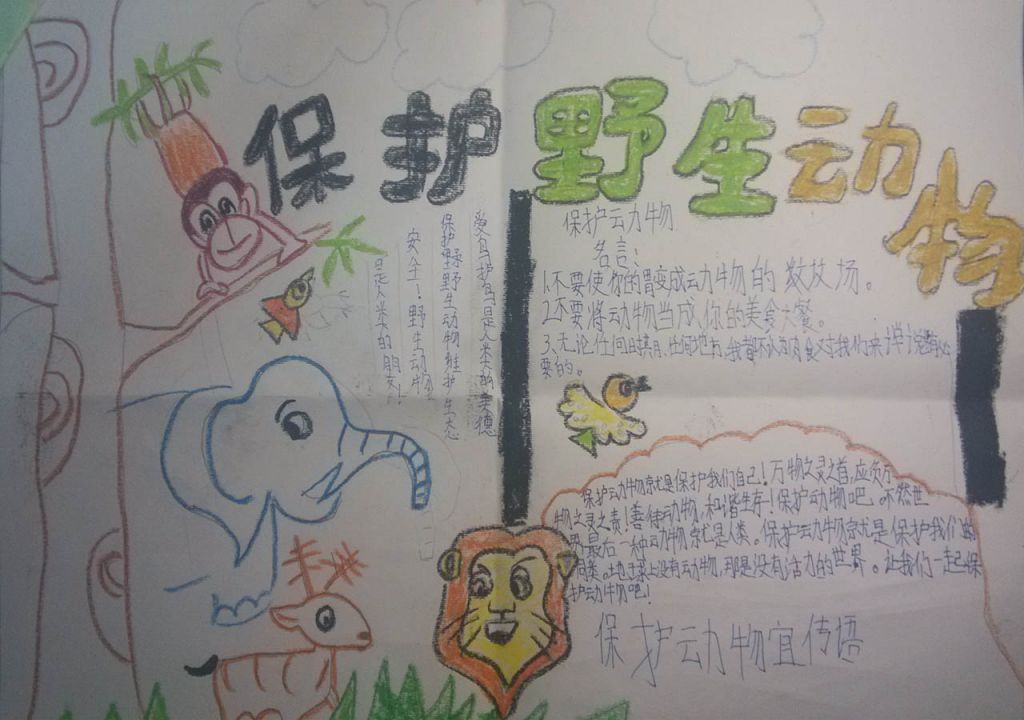 保护野生动物
爱鸟护鸟是人类的美德
保护野野生动物维护生态
安全！野生动物
是人类的朋友！
保护动物
名言：
1.不要使你的胃变成动物的数坟场。
2.不要将动物当成你的美食大餐。
3、无论任何时期，任何地方，我都不认为肉食对我们来讲
要的。
保护动物就是保护我们自己！万物之灵之首，应负万
物之灵之责！善使动物，和谐生存！保护动物吧，不然世
界最后一种动物就是人类。保护动物就是保护我们
同类。地球上没有动物，那是没有活力的世界。让我们一起保
护动物吧！
保护动物宜传语